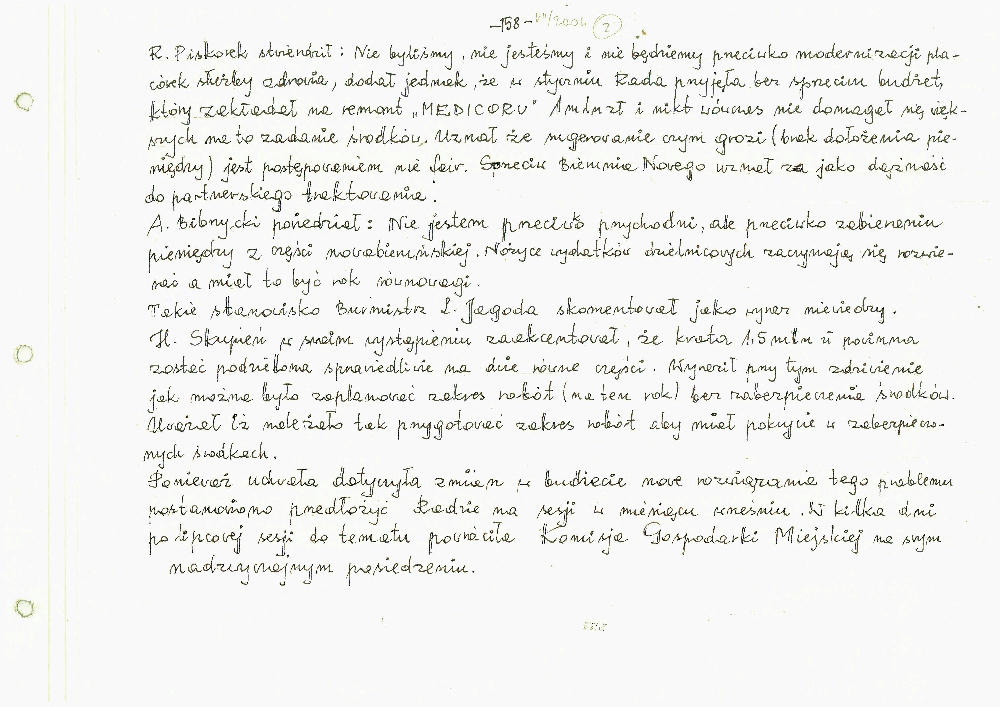 -158- VII/2006 (2)
R. Piskorek stwierdził: Nie byliśmy, nie jesteśmy i nie będziemy przeciwko modernizacji pla-
cówek służby zdrowia, dodał jednak, że w styczniu Rada przyjęła bez sprzeciwu budżet,
który zakładał na remont „MEDICORU" 1 mln zł i nikt wówczas nie domagał się więk-
szych na to zadanie środków. Uznał że sugerowanie czym grozi (brak dołożenia pie-
niędzy) jest postępowaniem nie fair. Sprzeciw Bierunia Nowego uznał za jako dążność
do partnerskiego traktowania.
A. Bibrzycki powiedział: Nie jestem przeciwko przychodni, ale przeciwko zabieraniu
pieniędzy z części nowobieruńskiej. Nożyce wydatków dzielnicowych zaczynają się rozwie-
rać a miał to być rok równowagi.
Takie stanowisko Burmistrz L. Jagoda skomentował jako wyraz niewiedzy.
H. Skupień w swoim wystąpieniu zaakcentował, że kwota 1,5 mln zł powinna
zostać podzielona sprawiedliwie na dwie równe części. Wyraził przy tym zdziwienie
jak można było zaplanować zakres robót (na ten rok) bez zabezpieczenia środków.
Uważał iż należało tak przygotować zakres robót aby miał pokrycie w zabezpieczo-
nych środkach.
Ponieważ uchwała dotyczyła zmian w budżecie nowe rozwiązanie tego problemu
postanowiono przedłożyć Radzie na sesji w miesiącu wrześniu. W kilka dni
po lipcowej sesji do tematu powróciła Komisja Gospodarki Miejskiej na swym
nadzwyczajnym posiedzeniu.